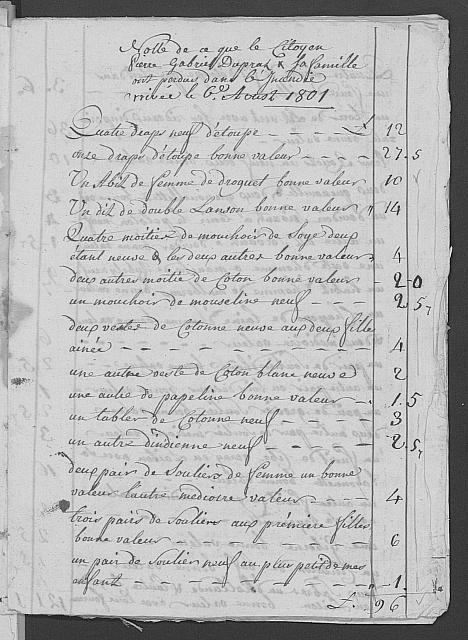 Notte de ce que le Citoyen
Pierre Gabriel Dupraz & sa famille
ont perdus dans l'Incendie
arrivée le 6.e Aoust 1801
Quatre draps neuf d'étoupe — — — £ 12
onze draps d'étoupe bonne valeur — — — — 27-5
Un Abit de femme de droguet bonne valeur 10
Un dit de double bonne valeur " 14
Quatre moitiés de mouchoir de Soye deux
etant neuve & les deux autres bonne valeur 4
deux autres moitié de Coton bonne valeur - 2-0
un mouchoir de mouseline neuf — — — 2 5
deux vestes de Cotonne neuve aux deux filles
ainée — — — — — — — — — 4
une autre veste de Coton blanc neuve 2
une autre de papeline bonne valeur — . 1.5
un tablier de Cotonne neuf — — — — 3
un autre d'indienne neuf — — — — 2 5
deux pair de Souliers de femme un bonne
valeur l'autre mediocre valeur — — — 4
trois pairs de Souliers aux prémiere filles
bonne valeur — — — — — — — 6
un pair de Soulier neuf au plus petit de mes
enfant — — — — — — — — " -1
£. 96